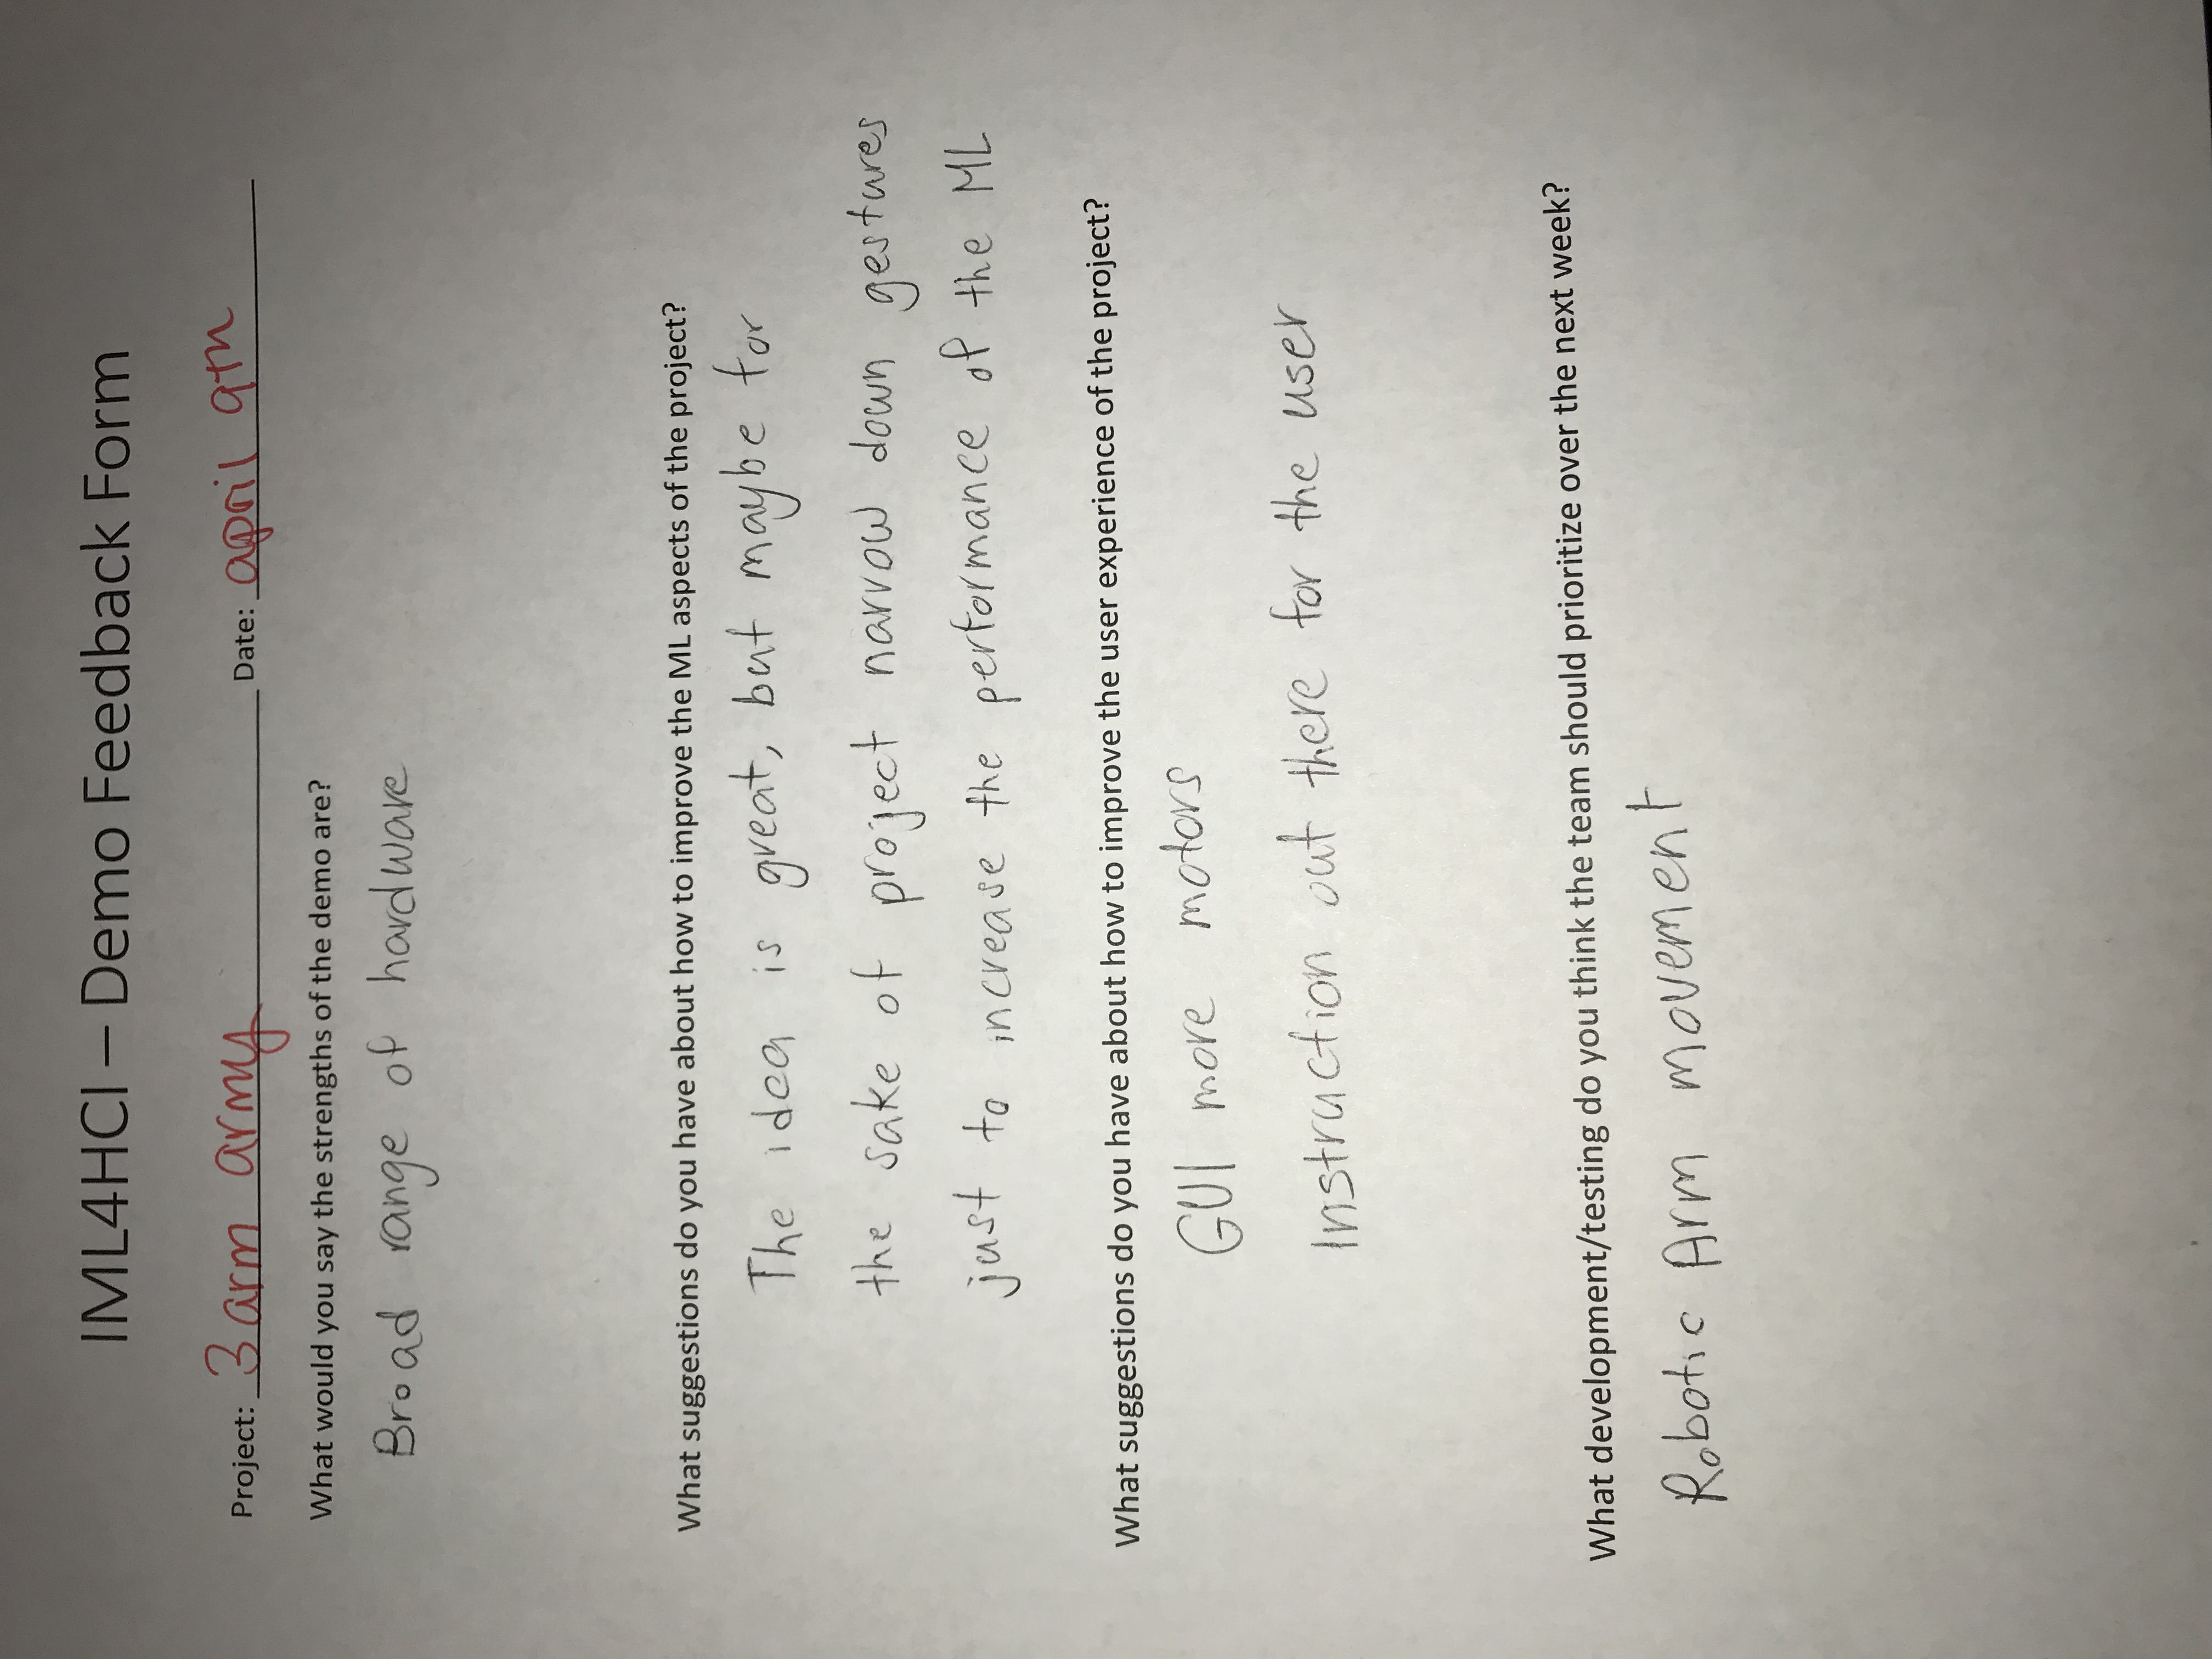 IML4HCI – Demo Feedback Form
Project: 3 arm army Date: april 9th
What would you say the strengths of the demo are?
Broad range of hardware
What suggestions do you have about how to improve the ML aspects of the project?
The idea is great, but maybe for
the sake of project narrow down gestures
just to increase the performance of the ML
What suggestions do you have about how to improve the user experience of the project?
GUI more motors
Instruction out there for the user
What development/testing do you think the team should prioritize over the next week?
Robotic Arm movement